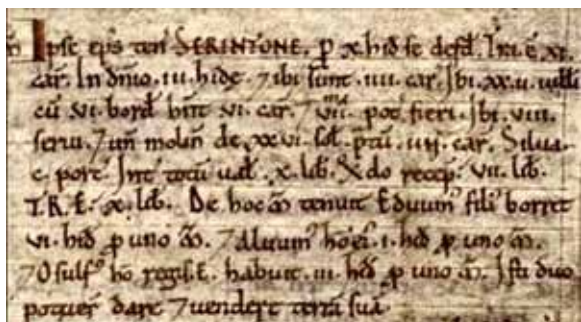 ꝳ Ipse ep̄s ten̄ SERINTONE. ꝓ x. hid̄ se defd̄. Tr̄a. ē. xi.
car̄. In dn̄io. iii. hidę. ⁊ ibi sunt. iiii. car̄. Ibi. xx.ii. uiłłi
cū vi. bord̄ hn̄t vi. car̄. ⁊ viiᵐᵃ pot̄ fieri. Ibi. viii.
serui. ⁊ un̄ molin̄ de xxvi. sol̄. p̄tū. iiij. car̄. Silua.
c. porc̄. Int̄ totū ual̄. x. lib̄. Q̄do recep̄. vii. lib̄.
T.R.E. x. lib̄. De hoc ꝳ tenuit Eduuin᷒ fili᷒ borret
vi. hid̄ ꝓ uno ꝳ. ⁊ Aluuin᷒ hō ei᷒. i. hid̄ ꝓ uno ꝳ.
⁊ Osulf᷒ hō regis. E. habuit. iii. hid̄ ꝓ uno ꝳ. Isti duo
potuer̄ dare ⁊ uendere terrā suā